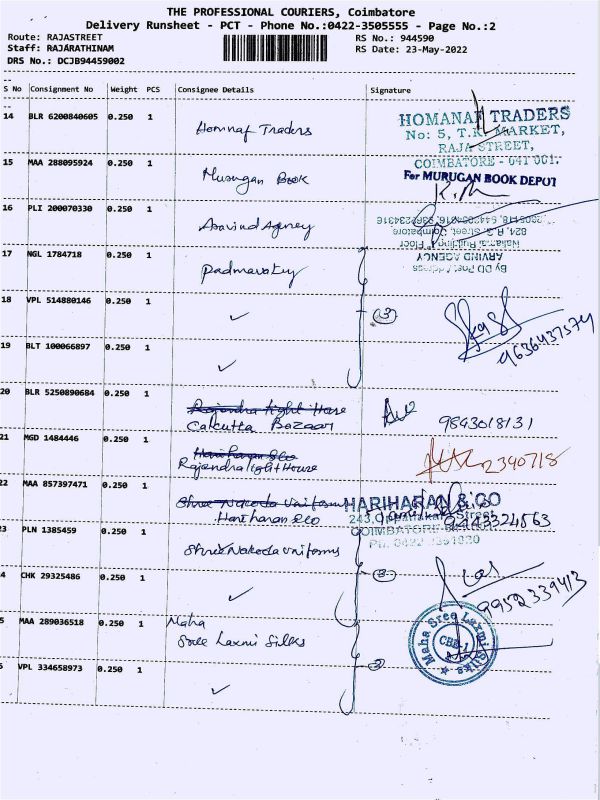 THE PROFESSIONAL COURIERS, Coimbatore
Delivery Runsheet - PCT - Phone No.:0422-3505555 - Page No.:2
Route: RAJASTREET
RS No.: 944590
Staff: RAJARATHINAM
RS Date: 23-May-2022
DRS No.: DCJB94459002
S No Consignment No Weight PCS Consignee Details Signature
14 BLR 6200840605 0.250 1 Homnaf Traders
HOMANAF TRADERS
No: 5, T.K. MARKET,
RAJA STREET,
COIMBATORE - 641 001.
15 MAA 288095924 0.250 1 Murugan Book
For MURUGAN BOOK DEPOT
16 PLI 200070330 0.250 1 Aravind Agency
By DD Post Address
ARVIND AGENCY
17 NGL 1784718 0.250 1 Padmavathy
18 VPL 514880146 0.250 1 ✓
(3)
9636437574
19 BLT 100066897 0.250 1 ✓
20 BLR 5250890684 0.250 1 Rajendra light House
Calcutta Bazaar
9843018131
21 MGD 1484446 0.250 1 Hariharan &co
Rajendra light House
2340718
22 MAA 857397471 0.250 1 Shree Nakoda Uniforms
Hariharan &co
HARIHARAN & CO
COIMBATORE
3 PLN 1385459 0.250 1 Shree Nakoda Uniforms
4 CHK 29325486 0.250 1 ✓
9952339413
5 MAA 289036518 0.250 1 Maha
Sree Laxmi Silks
Maha Sree Laxmi Silks
CBE-1
5 VPL 334658973 0.250 1 ✓
(2)